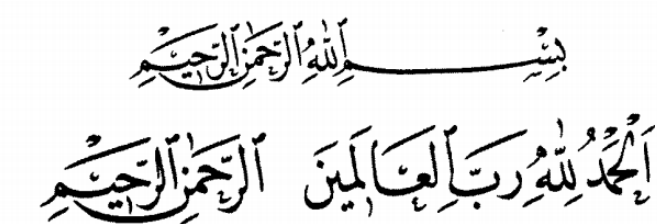 بِسْمِ اللّٰهِ الرَّحْمٰنِ الرَّحِيْمِ
اَلْحَمْدُ لِلّٰهِ رَبِّ الْعَالَمِيْنَ الرَّحْمٰنِ الرَّحِيْمِ